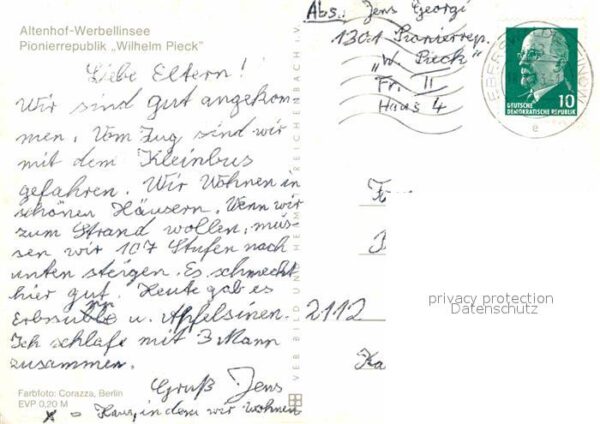 Altenhof-Werbellinsee
Pionierrepublik „Wilhelm Pieck"
Liebe Eltern!
Wir sind gut angekom
men. Vom Zug sind wir
mit dem Kleinbus
gefahren. Wir Wohnen in
schönen Häusern. Wenn wir
zum Strand wollen, müs-
sen wir 107 Stufen nach
unten steigen. Es schmeckt
hier gut. Heute gab es
u. Apfelsinen.
Ich schlafe mit 3 Mann
zusammen.
Gruß Jens
Farbfoto: Corazza, Berlin
EVP 0,20 M
x = Haus, in dem wir wohnen
VEB BILD UND HEIMAT REICHENBACH i. V.
Abs.: Jens Georgi
1301 Pionierrep.
„W. Pieck"
Fr. II
Haus 4
DEUTSCHE
DEMOKRATISCHE REPUBLIK
10
EBERSWALDE-FINOW
e
2112
Ka
privacy protection
Datenschutz